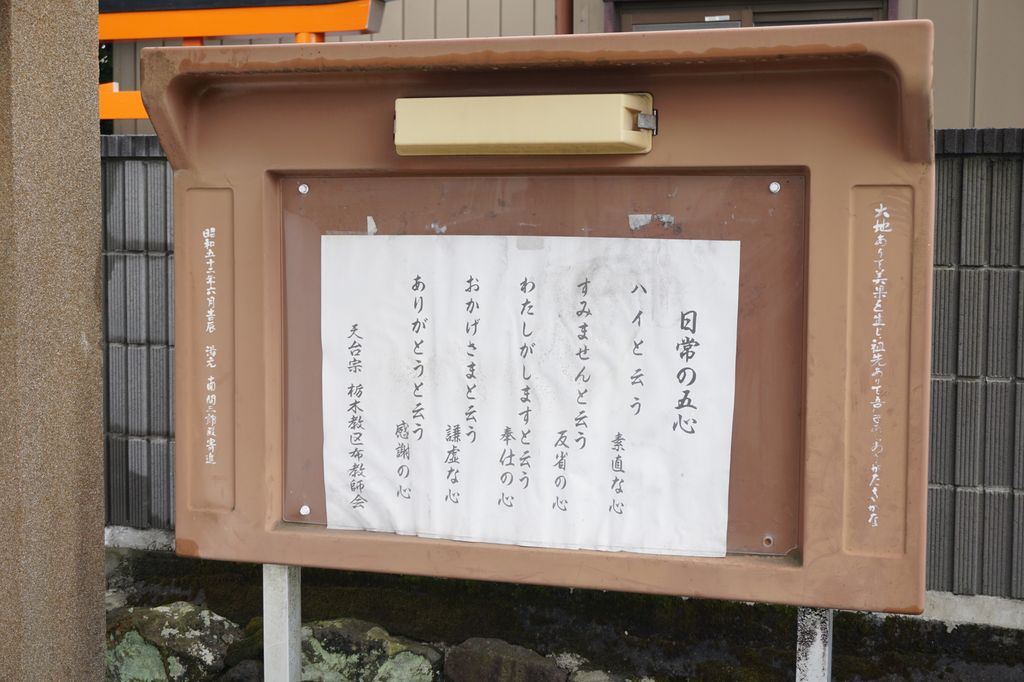 大地ありて美果を生じ祖先ありて吾
日常の五心
ハイと云う 素直な心
すみませんと云う 反省の心
わたしがしますと云う 奉仕の心
おかげさまと云う 謙虚な心
ありがとうと云う 感謝の心
天台宗 栃木教区布教師会
昭和五十三年六月吉辰 湯元 南間三郎殿寄進